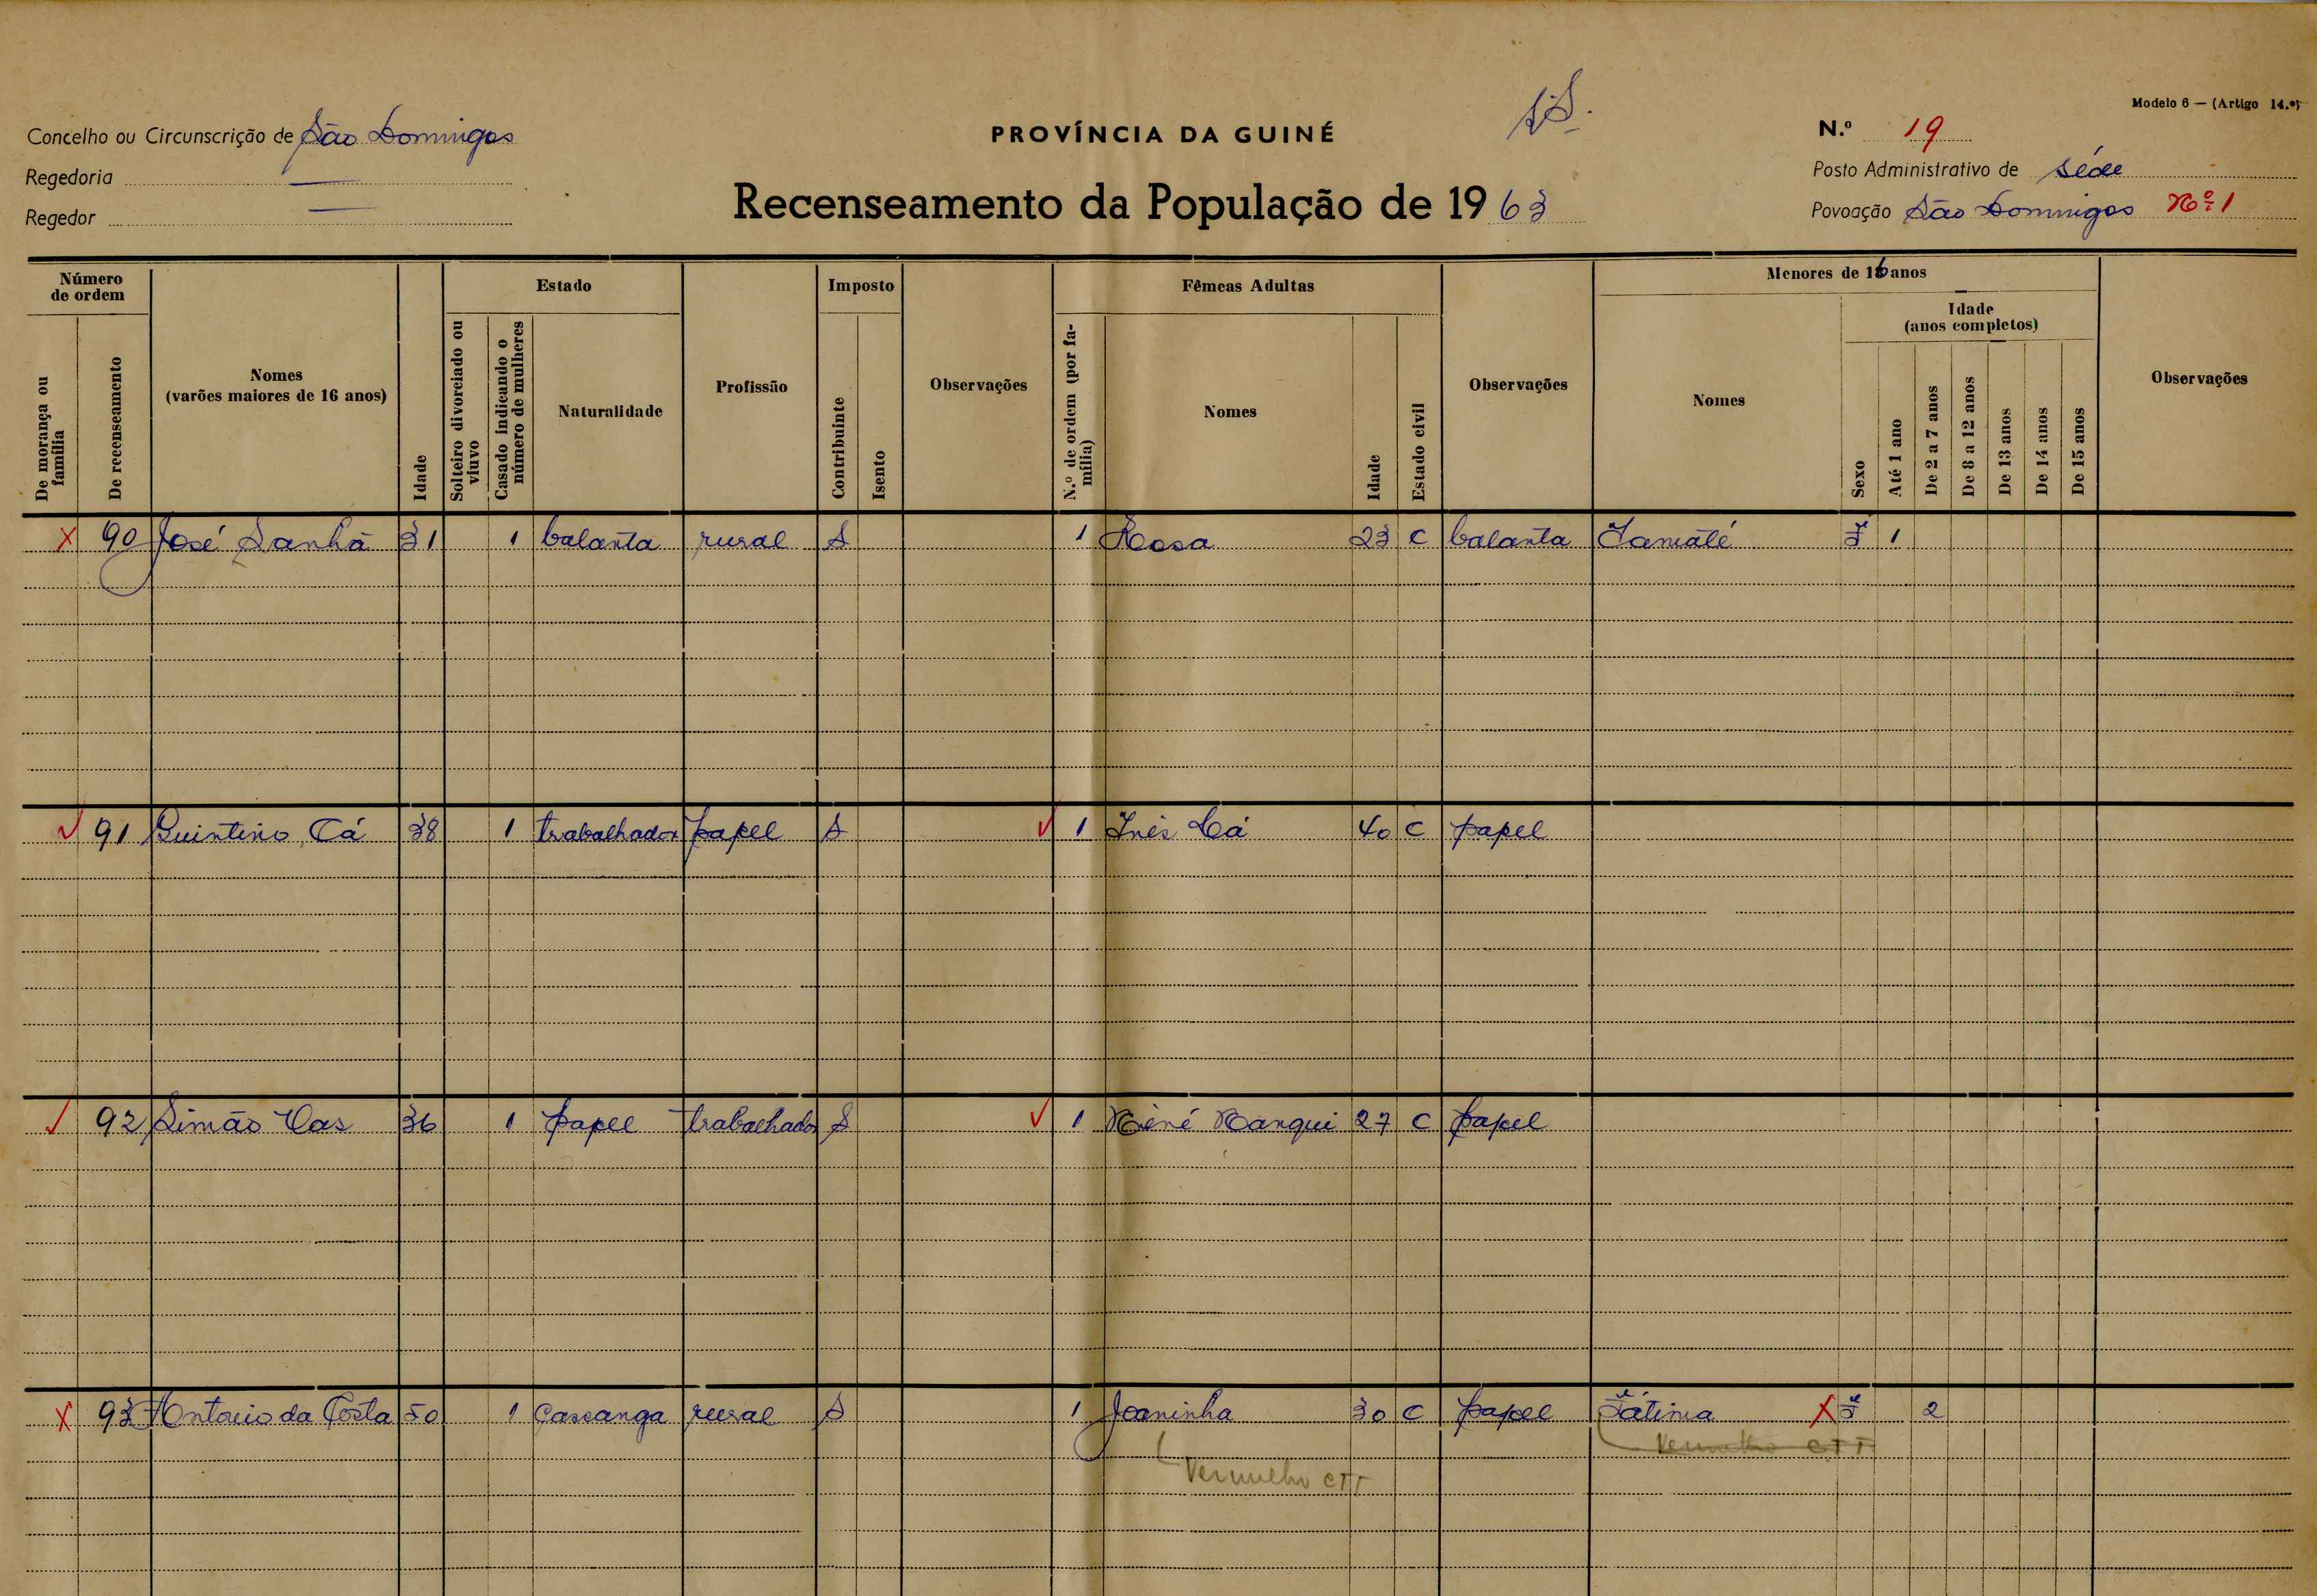 Modelo 6 — (Artigo 14.º)
Concelho ou Circunscrição de São Domingos
PROVÍNCIA DA GUINÉ
N.º 19
Regedoria —
Posto Administrativo de Séde
Regedor —
Recenseamento da População de 1963
Povoação São Domingos Nº 1
Número de ordem
De morança ou família
De recenseamento
Nomes
(varões maiores de 16 anos)
Idade
Estado
Solteiro divorciado ou viuvo
Casado indicando o número de mulheres
Naturalidade
Profissão
Imposto
Contribuinte
Isento
Observações
Fêmeas Adultas
N.º de ordem (por família)
Nomes
Idade
Estado civil
Observações
Menores de 16 anos
Nomes
Sexo
Idade
(anos completos)
Até 1 ano
De 2 a 7 anos
De 8 a 12 anos
De 13 anos
De 14 anos
De 15 anos
Observações
X 90 José Sanhá 31 1 balanta rural S 1 Rosa 23 C balanta F 1
✓ 91 Quintino Cá 38 1 trabalhador papel S ✓ 1 Inês Cá 40 C papel
✓ 92 Simão Vas 36 1 papel trabalhador S ✓ 1 Nanqui 27 C papel
X 93 Antonio da Costa 50 1 Cassanga rural S 1 Joaninha 30 C papel Fátima X F 2
Vermelho CTT
Vermelho CTT